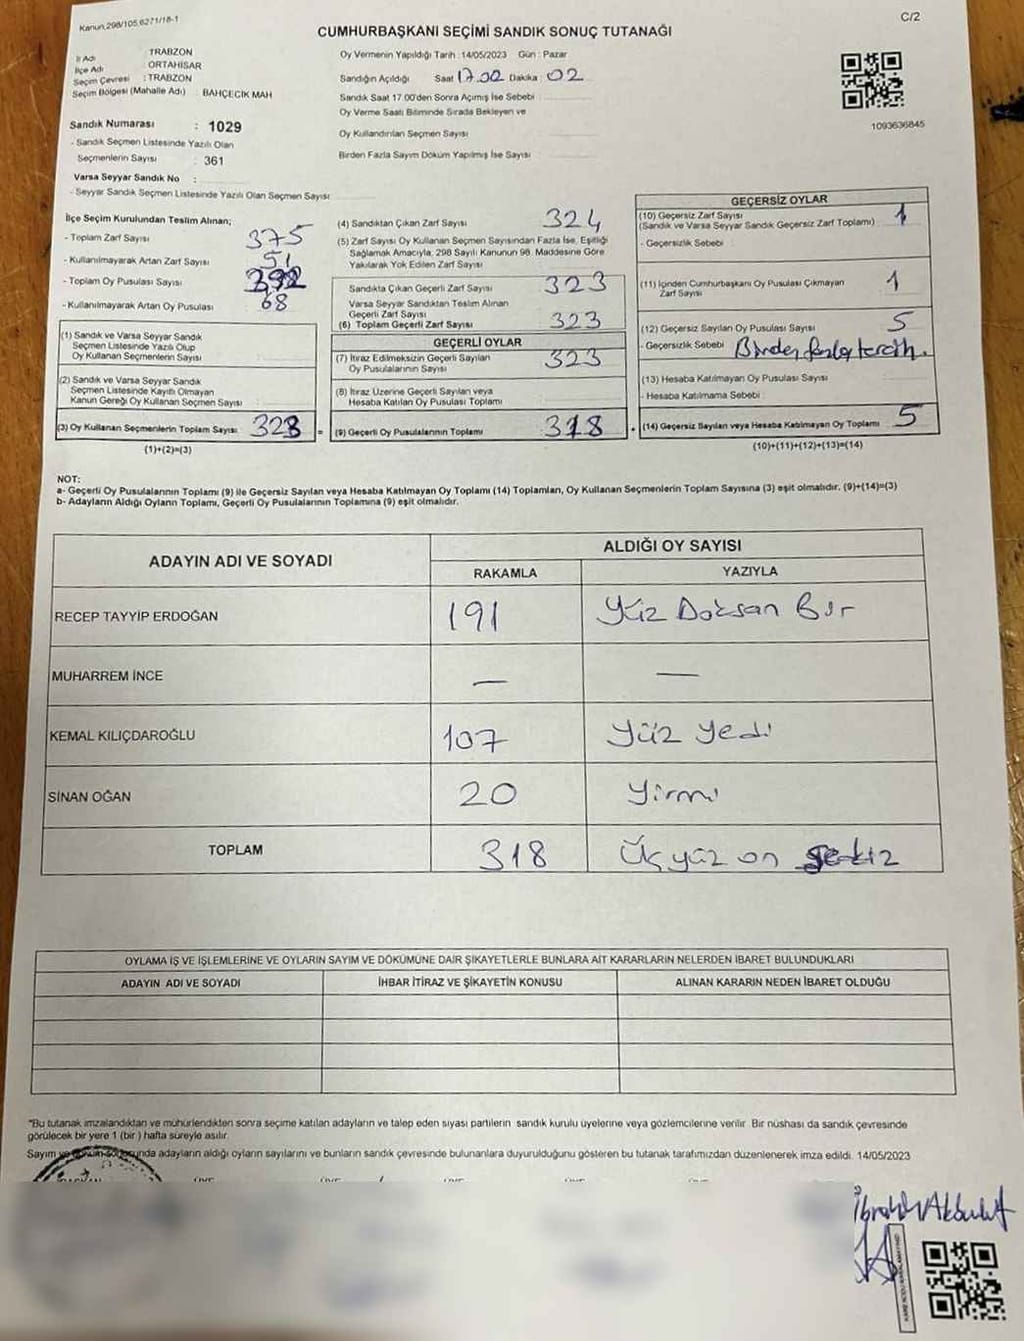 Kanun,298/105,6271/18-1
C/2
CUMHURBAŞKANI SEÇİMİ SANDIK SONUÇ TUTANAĞI
İl Adı : TRABZON
İlçe Adı : ORTAHİSAR
Seçim Çevresi : TRABZON
Seçim Bölgesi (Mahalle Adı) : BAHÇECİK MAH
Sandık Numarası : 1029
- Sandık Seçmen Listesinde Yazılı Olan
Seçmenlerin Sayısı : 361
Varsa Seyyar Sandık No :
- Seyyar Sandık Seçmen Listesinde Yazılı Olan Seçmen Sayısı
Oy Vermenin Yapıldığı Tarih : 14/05/2023 Gün : Pazar
Sandığın Açıldığı Saat 17.00 Dakika : 02
Sandık Saat 17.00'den Sonra Açımış İse Sebebi :
Oy Verme Saati Bitiminde Sırada Bekleyen ve
Oy Kullandırılan Seçmen Sayısı
Birden Fazla Sayım Döküm Yapılmış İse Sayısı
1093636845
İlçe Seçim Kurulundan Teslim Alınan;
- Toplam Zarf Sayısı 375
- Kullanılmayarak Artan Zarf Sayısı 51
- Toplam Oy Pusulası Sayısı
- Kullanılmayarak Artan Oy Pusulası 68
(1) Sandık ve Varsa Seyyar Sandık
Seçmen Listesinde Yazılı Olup
Oy Kullanan Seçmenlerin Sayısı
(2) Sandık ve Varsa Seyyar Sandık
Seçmen Listesinde Kayıtlı Olmayan
Kanun Gereği Oy Kullanan Seçmen Sayısı
(3) Oy Kullanan Seçmenlerin Toplam Sayısı 323
(1)+(2)=(3)
(4) Sandıktan Çıkan Zarf Sayısı 324
(5) Zarf Sayısı Oy Kullanan Seçmen Sayısından Fazla İse, Eşitliği
Sağlamak Amacıyla, 298 Sayılı Kanunun 98. Maddesine Göre
Yakılarak Yok Edilen Zarf Sayısı
Sandıkta Çıkan Geçerli Zarf Sayısı 323
Varsa Seyyar Sandıktan Teslim Alınan
Geçerli Zarf Sayısı
(6) Toplam Geçerli Zarf Sayısı 323
GEÇERLİ OYLAR
(7) İtiraz Edilmeksizin Geçerli Sayılan
Oy Pusulalarının Sayısı 323
(8) İtiraz Üzerine Geçerli Sayılan veya
Hesaba Katılan Oy Pusulası Toplamı
= (9) Geçerli Oy Pusulalarının Toplamı 318
GEÇERSİZ OYLAR
(10) Geçersiz Zarf Sayısı
(Sandık ve Varsa Seyyar Sandık Geçersiz Zarf Toplamı) 1
- Geçersizlik Sebebi :
(11) İçinden Cumhurbaşkanı Oy Pusulası Çıkmayan
Zarf Sayısı 1
(12) Geçersiz Sayılan Oy Pusulası Sayısı 5
- Geçersizlik Sebebi : Birden fazla tercih.
(13) Hesaba Katılmayan Oy Pusulası Sayısı
- Hesaba Katılmama Sebebi
+ (14) Geçersiz Sayılan veya Hesaba Katılmayan Oy Toplamı 5
(10)+(11)+(12)+(13)=(14)
NOT:
a- Geçerli Oy Pusulalarının Toplamı (9) ile Geçersiz Sayılan veya Hesaba Katılmayan Oy Toplamı (14) Toplamları, Oy Kullanan Seçmenlerin Toplam Sayısına (3) eşit olmalıdır. (9)+(14)=(3)
b- Adayların Aldığı Oyların Toplamı, Geçerli Oy Pusulalarının Toplamına (9) eşit olmalıdır.
ADAYIN ADI VE SOYADI ALDIĞI OY SAYISI
RAKAMLA YAZIYLA
RECEP TAYYİP ERDOĞAN 191 Yüz Doksan Bir
MUHARREM İNCE — —
KEMAL KILIÇDAROĞLU 107 Yüz Yedi
SİNAN OĞAN 20 Yirmi
TOPLAM 318 Üçyüz on sekiz
OYLAMA İŞ VE İŞLEMLERİNE VE OYLARIN SAYIM VE DÖKÜMÜNE DAİR ŞİKAYETLERLE BUNLARA AİT KARARLARIN NELERDEN İBARET BULUNDUKLARI
ADAYIN ADI VE SOYADI İHBAR İTİRAZ VE ŞİKAYETİN KONUSU ALINAN KARARIN NEDEN İBARET OLDUĞU
"Bu tutanak imzalandıktan ve mühürlendikten sonra seçime katılan adayların ve talep eden siyasi partilerin sandık kurulu üyelerine veya gözlemcilerine verilir. Bir nüshası da sandık çevresinde
görülecek bir yere 1 (bir ) hafta süreyle asılır.
Sayım ve döküm sonucunda adayların aldığı oyların sayılarını ve bunların sandık çevresinde bulunanlara duyurulduğunu gösteren bu tutanak tarafımızdan düzenlenerek imza edildi. 14/05/2023
İbrahim Akbulut